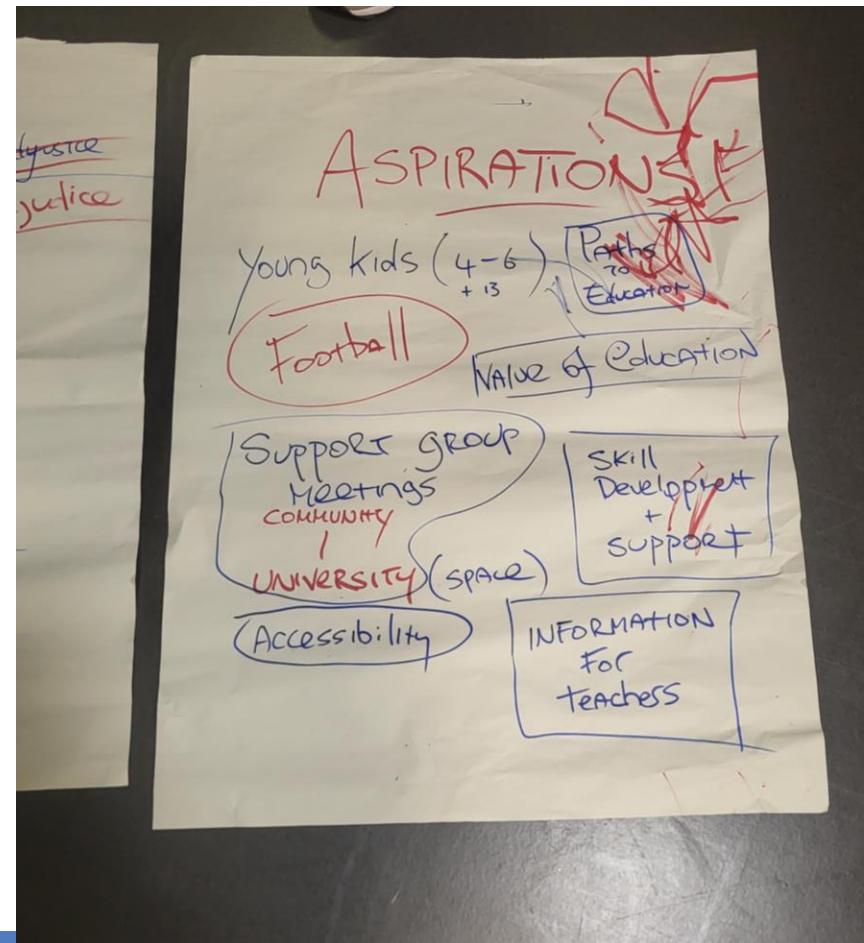 justice
ASPIRATIONS
Young Kids (4-6)
+ 13
Paths
to
Education
Football
Value of Education
Support group
Meetings
COMMUNITY
/
UNIVERSITY (SPACE)
Skill
Development
+
SUPPORT
Accessibility
INFORMATION
For
Teachers